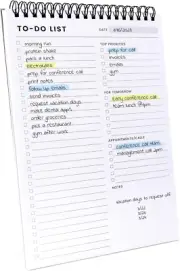 TO-DO LIST
DATE
morning run
protein shake
pack a lunch
electrolytes
prep for conference call
print notes
follow up emails
send invoices
request vacation days
make dental appt.
order groceries
pick a restaurant
gym after work
TOP PRIORITIES
prep for call
invoices
emails
gym
FOR TOMORROW
Early conference call
team lunch
APPOINTMENTS/CALLS
conference call 11am
management call 2pm
NOTES
vacation days to request off: